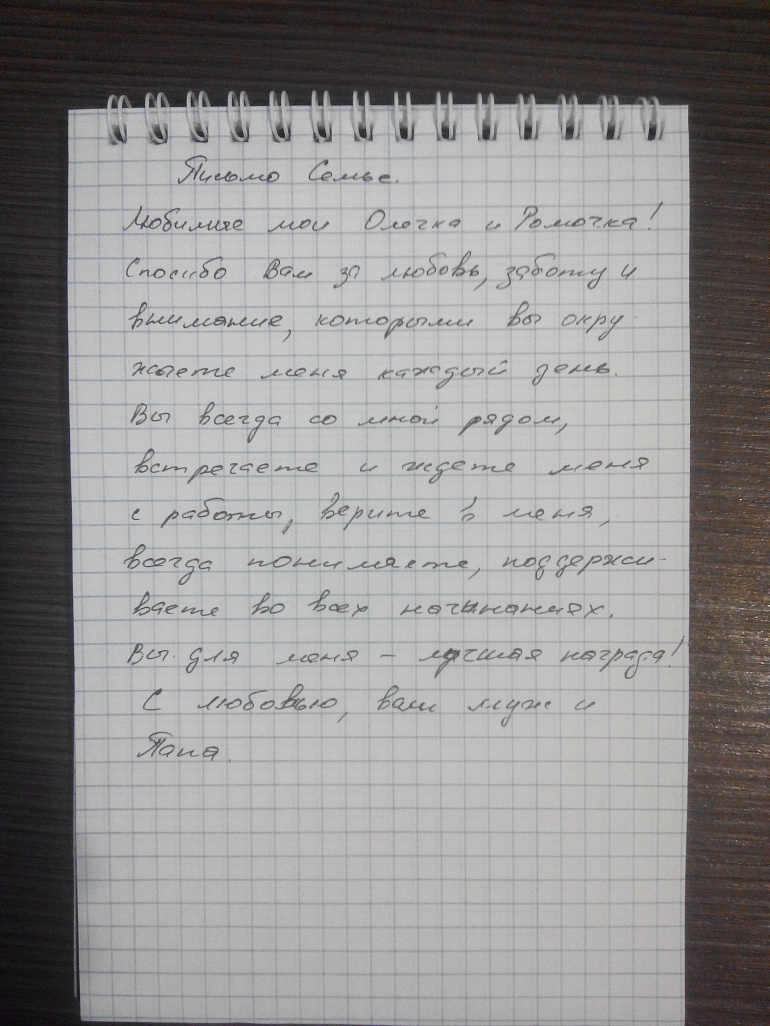 Письмо Семье.
Любимые мои Олечка и Ромочка!
Спасибо Вам за любовь, заботу и
внимание, которыми вы окру-
жаете меня каждый день.
Вы всегда со мной рядом,
встречаете и ждете меня
с работы, верите в меня,
всегда понимаете, поддержи-
ваете во всех начинаниях.
Вы для меня - лучшая награда!
С любовью, ваш муж и
Папа.